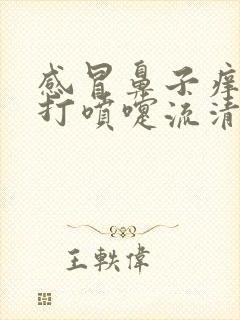 感冒鼻子痒
打噴嚏流清
王軼偉